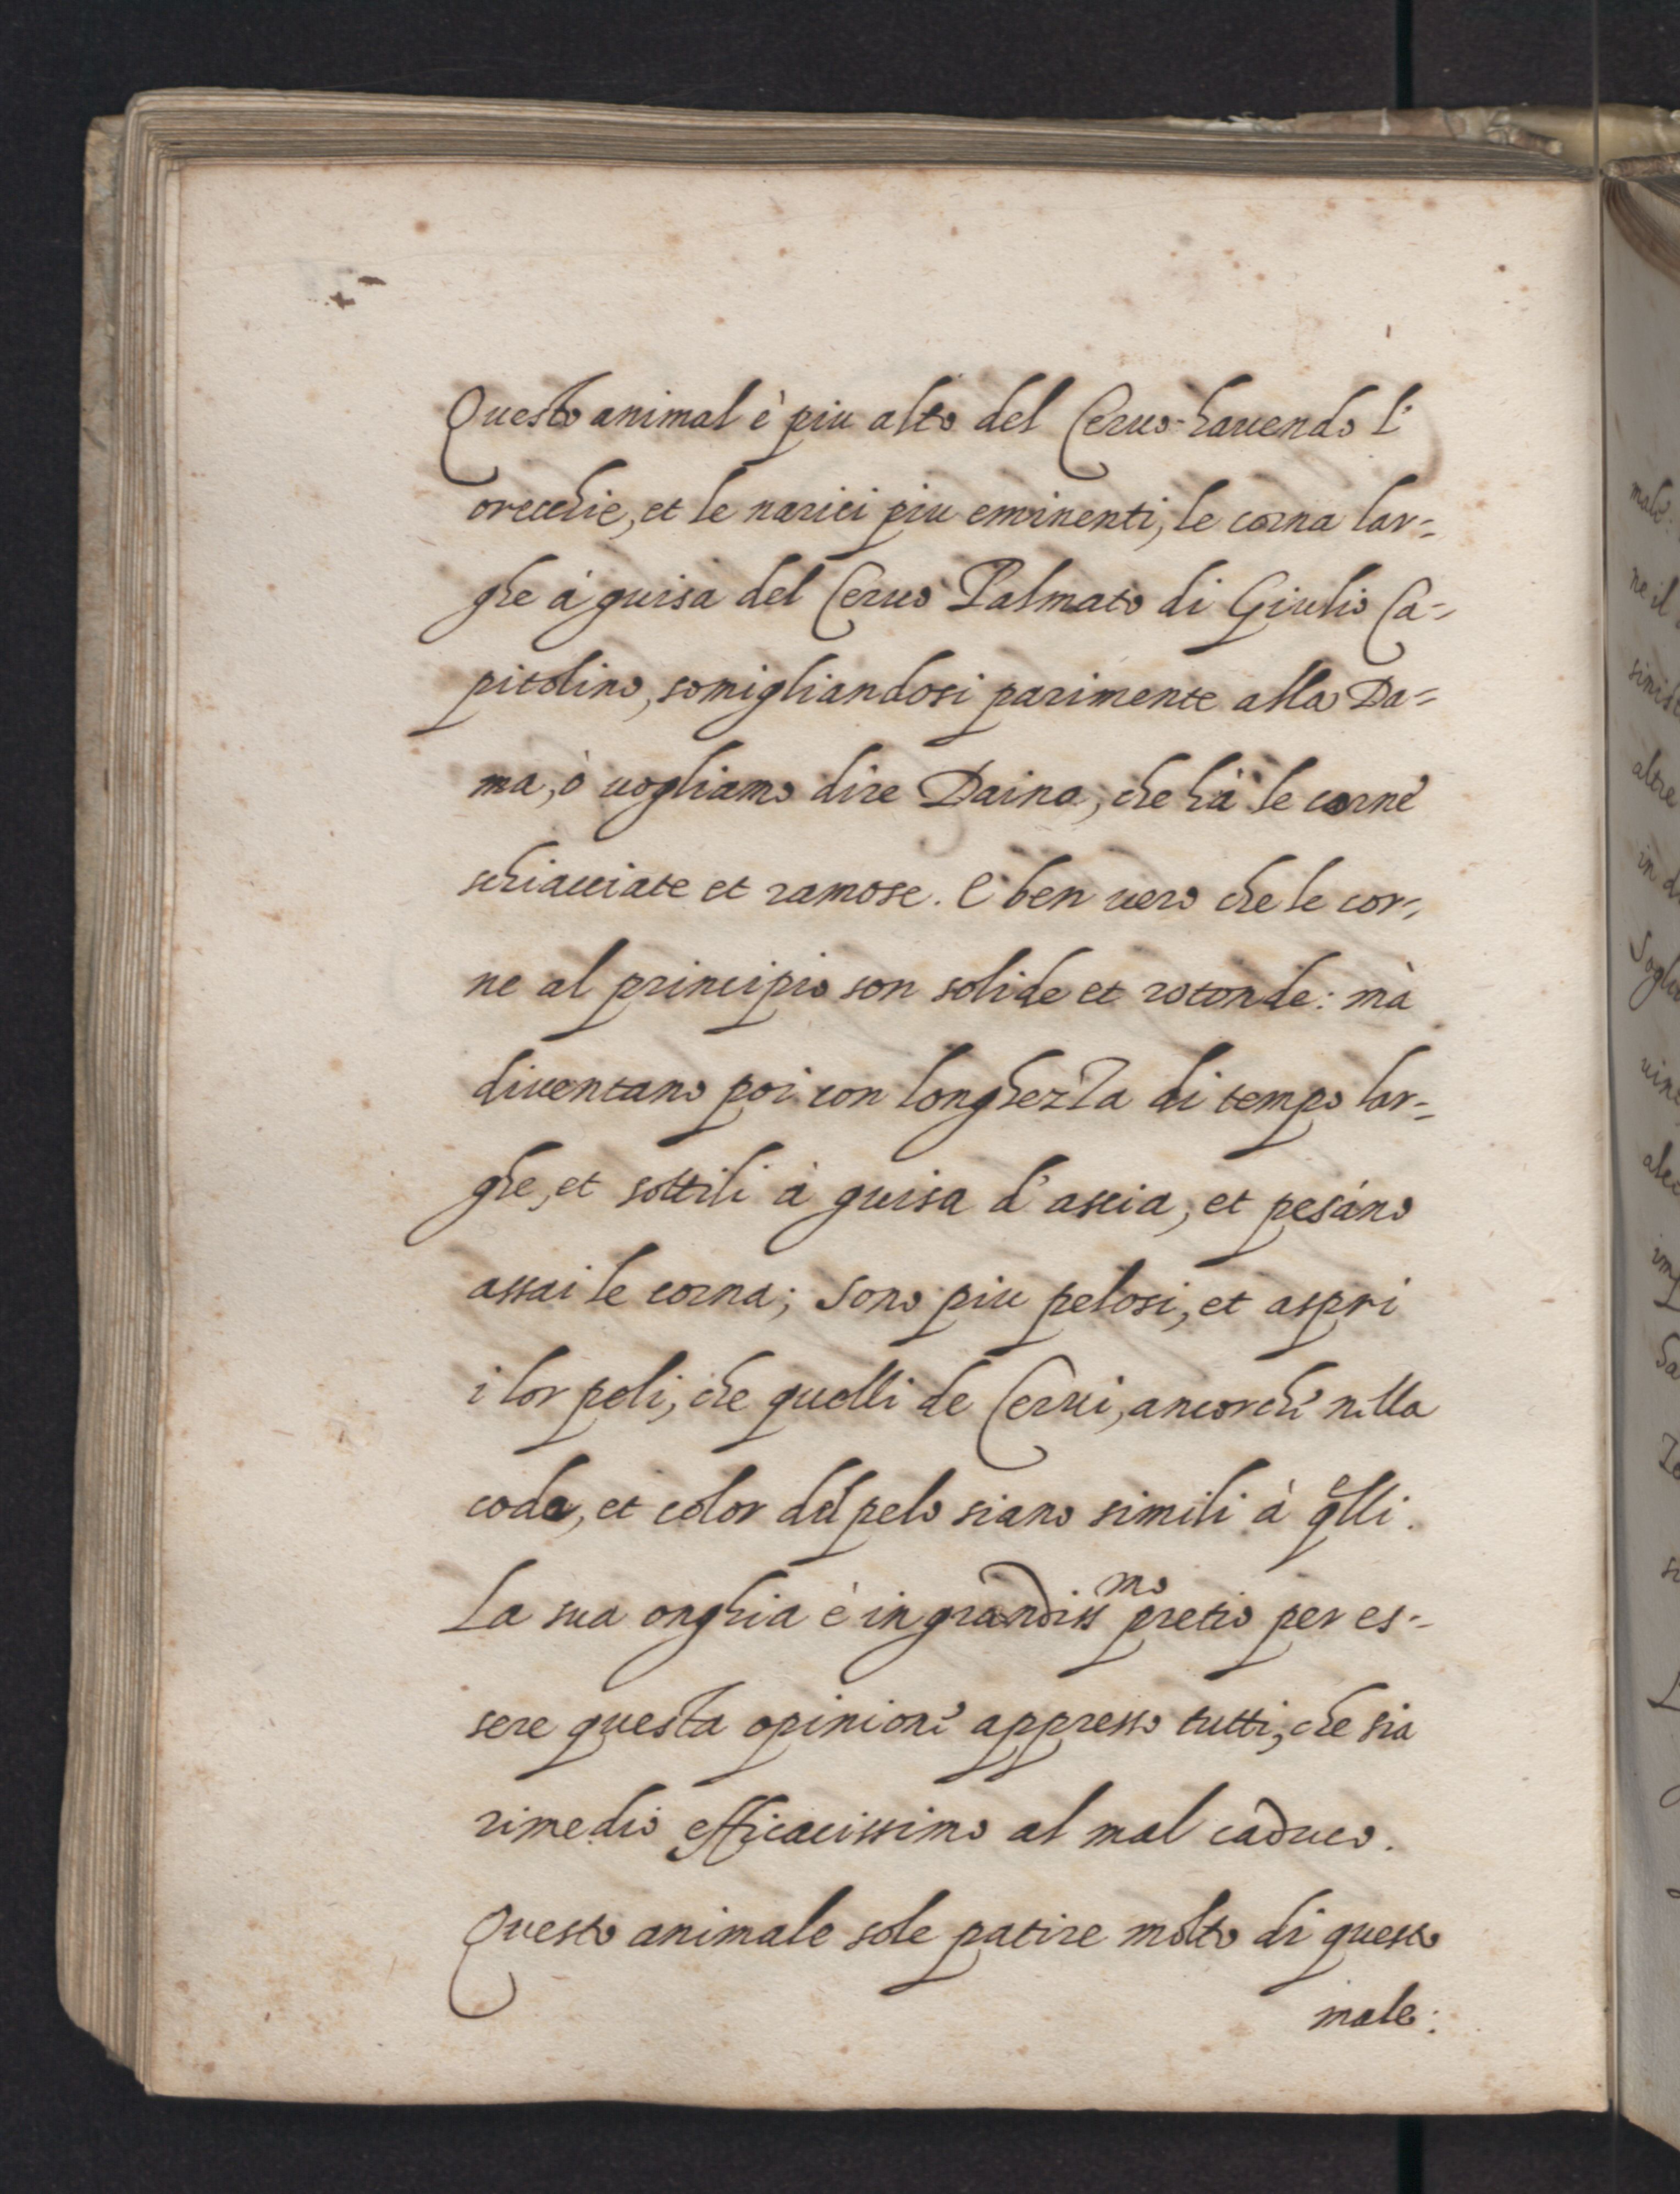 Questo animal è piu alto del Ceruo hauendo l'
orecchie, et le narici piu eminenti, le corna lar=
ghe à guisa del Ceruo Palmato di Giulio Ca=
pitolino, somigliandosi parimente alla Da=
ma, ò uogliamo dire Daina, che hà le corne
schiacciate et ramose. E ben uero che le cor=
ne al principio son solide et rotonde: mà
diuentano poi con longhezza di tempo lar=
ghe, et sottili à guisa d'ascia, et pesano
assai le corna; sono piu pelosi, et aspri
i lor peli, che quelli de Cerui, ancorche nella
coda, et color del pelo siano simili à qlli.
La sua onghia è in grandiss mo pretio per es=
sere questa opinione appresso tutti, che sia
rimedio efficacissimo al mal caduco.
Questo animale sole patire molto di questo
male: